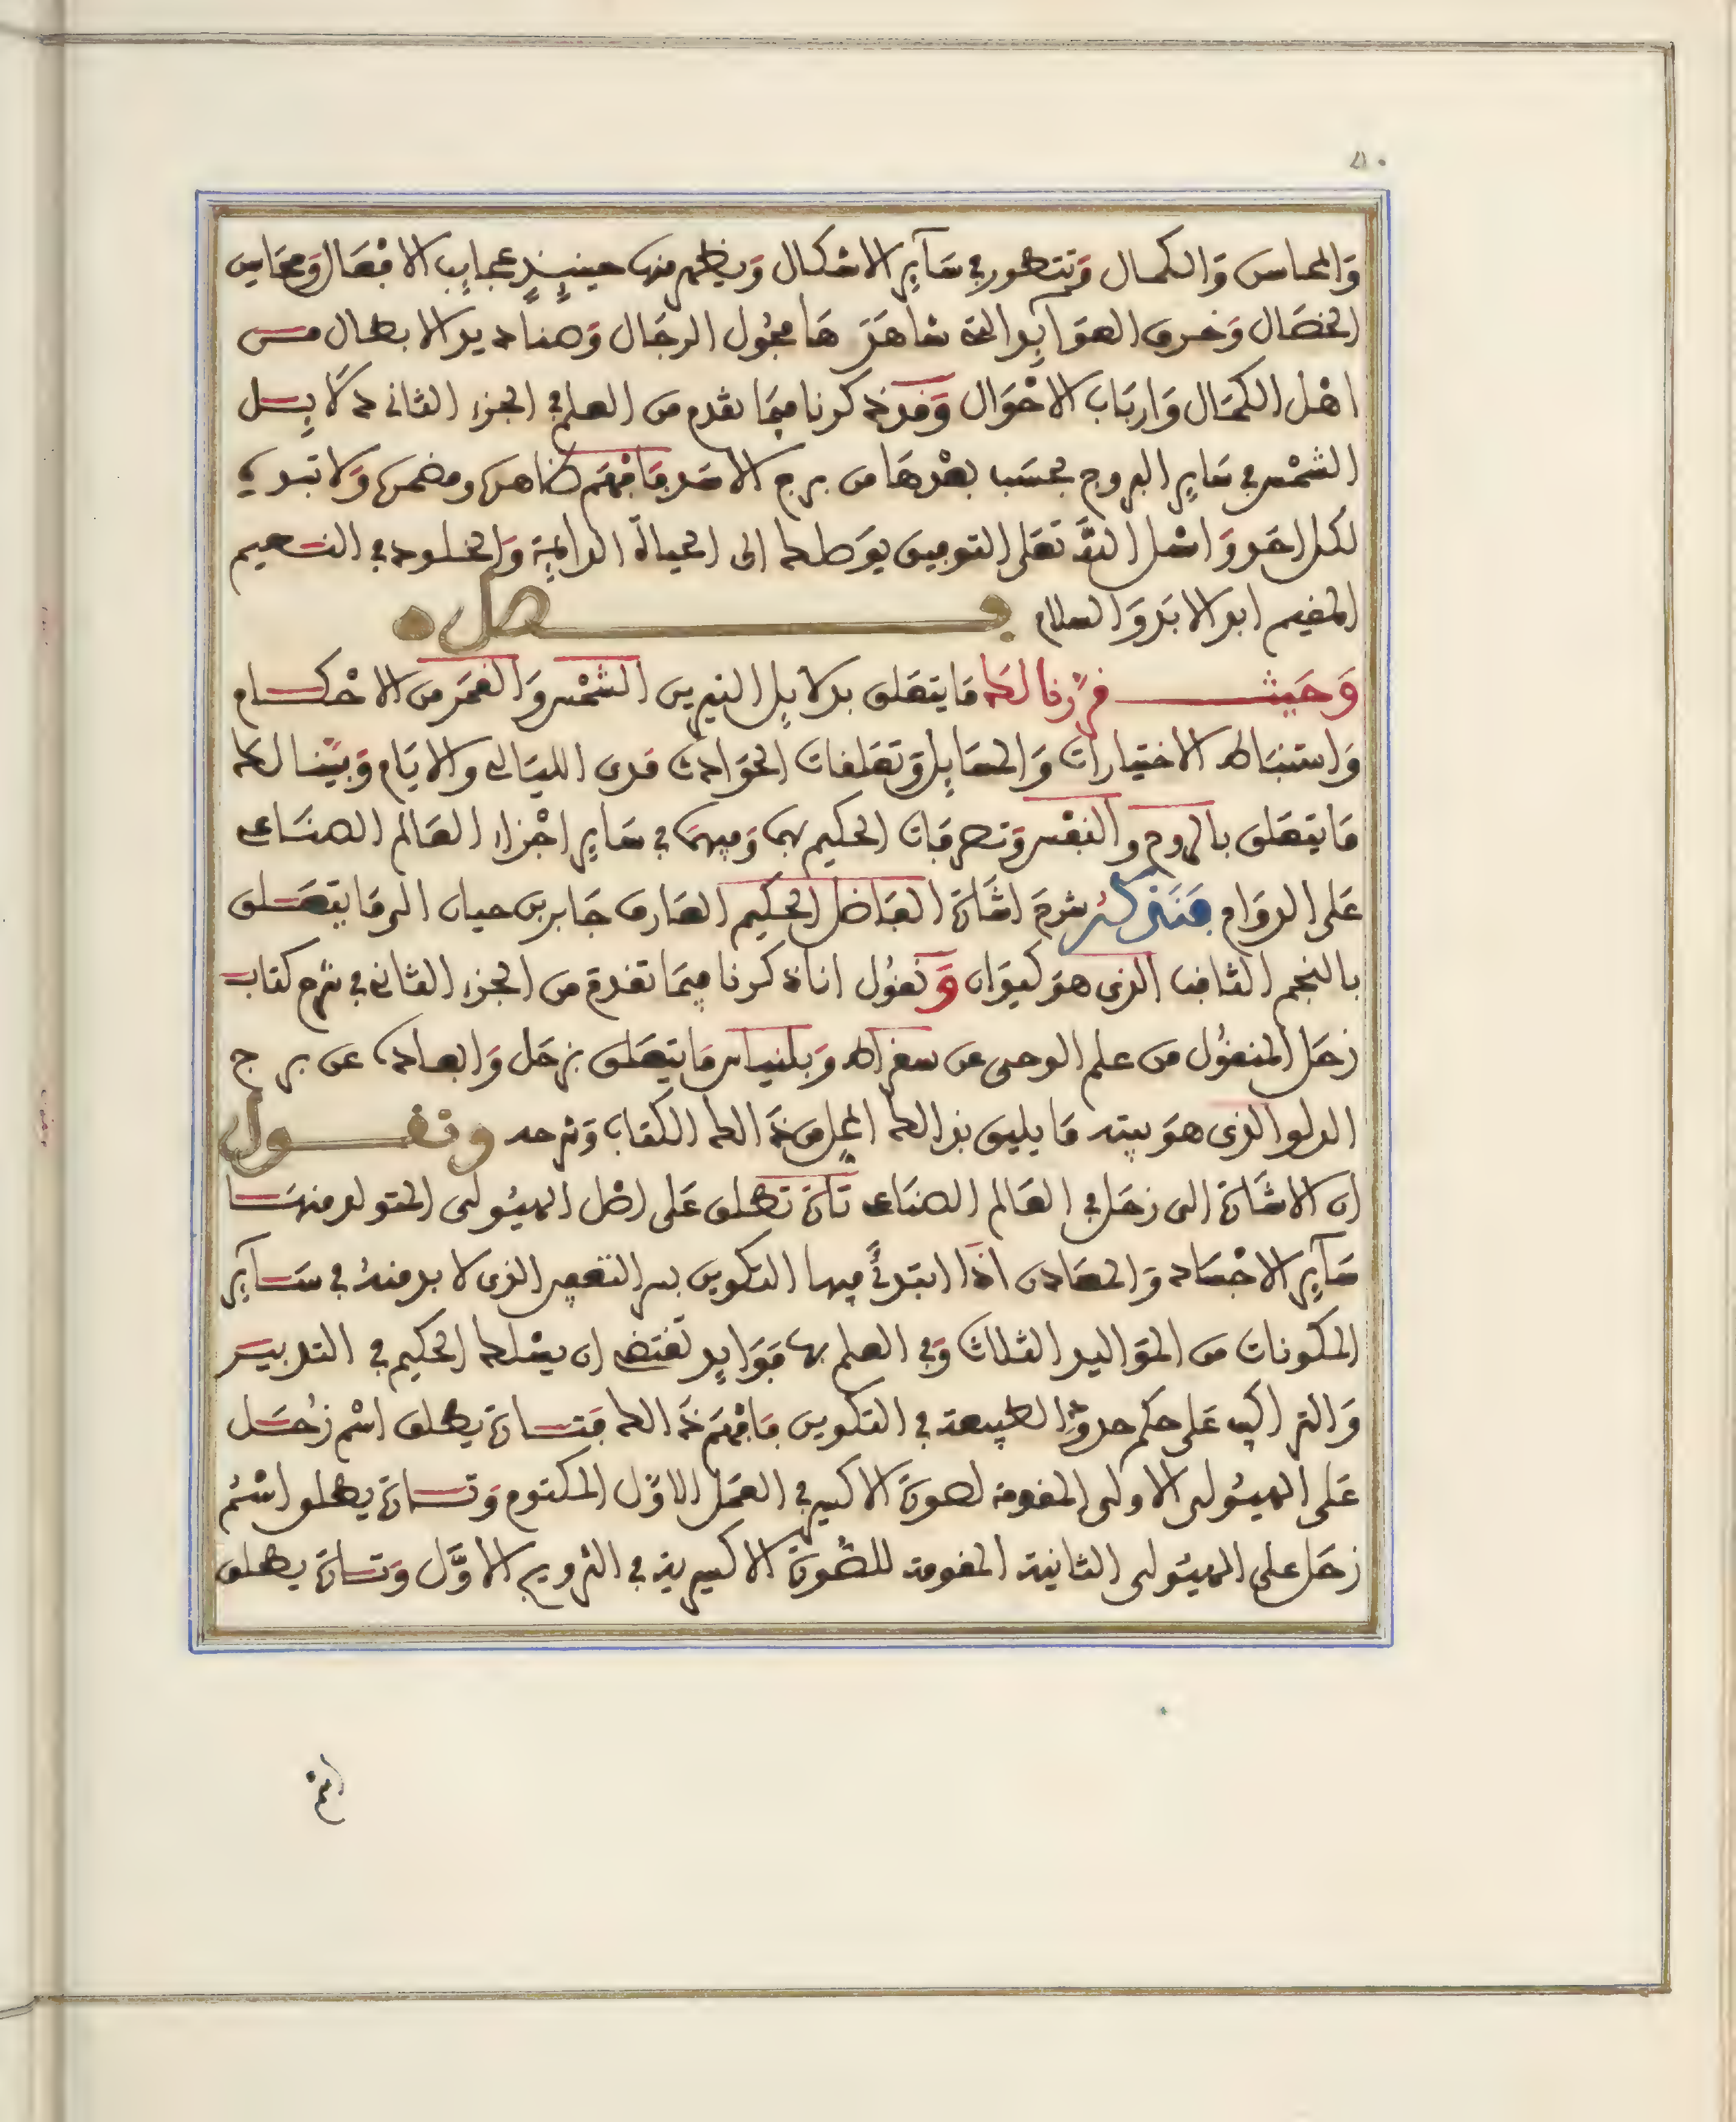 والمحاسن والكمال وتتطور في سآير الاشكال ويظهر منها حينيذ عجايب الافعال ومحاسن
الخصال وخرق العوايد التي شاهدها فحول الرجال وصناديد الابطال من
اهل الكمال وارباب الاحوال وقد ذكرنا فيما تقدم من العلم في الجزء الثاني دلايل
الشمس في ساير البروج بحسب بعدها من برج الاسد فافهم ظاهره ومضمره ولا تبديه
لكل احد واسئل الله تعلى التوفيق يوصلك الى الحياة الدايمة والخلود في النعيم
المقيم ابد الابد والسلام فصل
وحيث قررنا لك ما يتعلق بدلايل النيرين الشمس والقمر من الاحكام
واستنباط الاختيارات والمسايل وتعلقات الحوادث مدى الليالي والايام وبينا لك
ما يتعلق بالروح والنفس وتصرفات الحكيم بهما وفيهما في ساير اجزاء العالم الصناعي
على الدوام فنذكر شرح اشارة الفاضل الحكيم العارف جابر بن حيان الى ما يتعلق
بالنجم الثاقب الذي هو كيوان ونقول انا ذكرنا فيما تقدم من الجزء الثاني في شرح كتاب
زحل المنقول من علم الوحي عن سقراط وبلنياس ما يتعلق بزحل وابعاده عن برج
الدلو الذي هو بيته ما يليق بذالك المحل من ذالك الكتاب وشرحه ونقول
ان الاشارة الى زحل في العالم الصناعي تارة تطلق على اصل الهيولى المتولد منها
سآير الاجساد والمعادن اذا ابتدئ فيها التكوين بسر التعفين الذي لا بد منه في سآير
المكونات من المواليد الثلاث وفي العلم بها فوايد تقتضي ان يسلك الحكيم في التدبير
والتراكيب على حكم حدو الطبيعة في التكوين فافهم ذالك فتارة يطلق اسم زحل
على الهيولى الاولى المقومة لصورة الاكسير في العمل الاول المكتوم وتارة يطلق اسم
زحل على الهيولى الثانية المقومة للصورة الاكسيرية في التزويج الاول وتارة يطلق
اسم